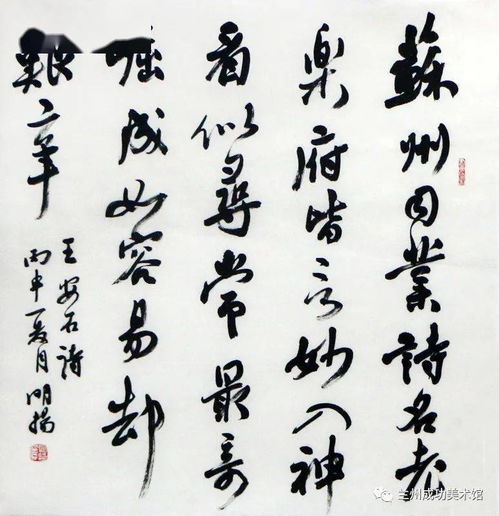 蘇州司業詩名老
楽府皆言妙入神
看似尋常最奇
崛成如容易却
艱辛
王安石詩
丙申夏月明揚
兰州成功美术馆